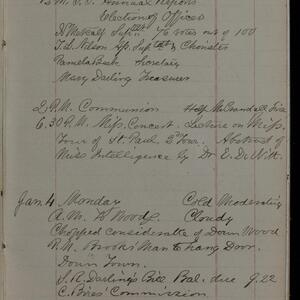 M. S. S. Annual Reports
Election of Officers
N Metcalf Supt 76 votes out of 100
T. D. Nelson Supt & Chorister
Pamela Bush Secretary
Mary Darling Treasurer
2 P.M. Communion
6.30 P.M. Miss. Concert. Lecture on Miss.
Tour of St. Paul 2nd Tour. Abstract of
Miss Intelligence by Dr E. DeWitt.
Jan 4 Monday Cold Moderating
A.M. Wood Cloudy
Chopped considerable of Down Wood
P.M. Brooks Man to hang Door.
Down Town.
S. R. Darling's Bill Bal. due 9.22
Commission